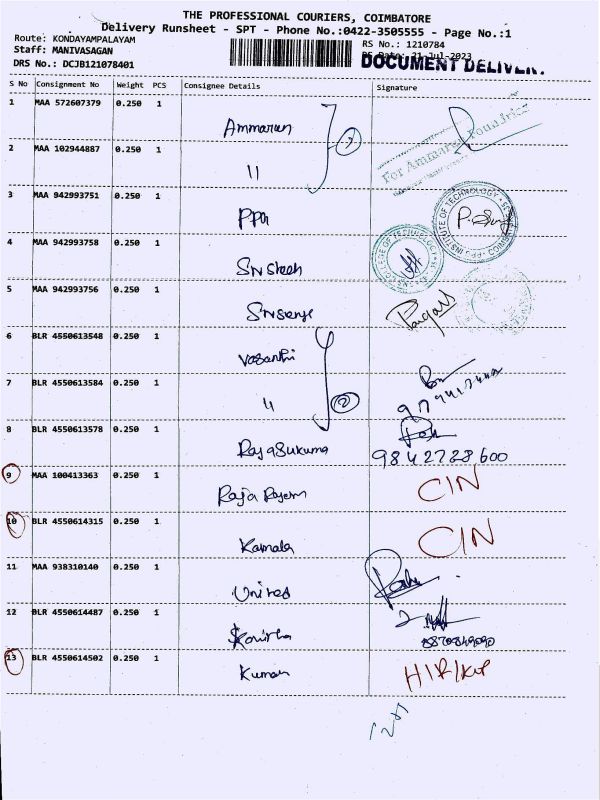 THE PROFESSIONAL COURIERS, COIMBATORE
Delivery Runsheet - SPT - Phone No.:0422-3505555 - Page No.:1
Route: KONDAYAMPALAYAM
RS No.: 1210784
Staff: MANIVASAGAN
RS Date: 21-Jul-2023
DRS No.: DCJB121078401
DOCUMENT DELIVER
S No Consignment No Weight PCS Consignee Details Signature
1 MAA 572607379 0.250 1 Ammarun
For Ammarun Foundries
2 MAA 102944887 0.250 1 "
3 MAA 942993751 0.250 1 PPG
INSTITUTE OF TECHNOLOGY
4 MAA 942993758 0.250 1
5 MAA 942993756 0.250 1
6 BLR 4550613548 0.250 1 Vasanthi
7 BLR 4550613584 0.250 1 " 2
8 BLR 4550613578 0.250 1 Rajasukuma
9842728600
9 MAA 100413363 0.250 1 Raja Rajem CIN
10 BLR 4550614315 0.250 1 Kamala CIN
11 MAA 938310140 0.250 1 United
12 BLR 4550614487 0.250 1 Kavitha
13 BLR 4550614502 0.250 1 Kumar